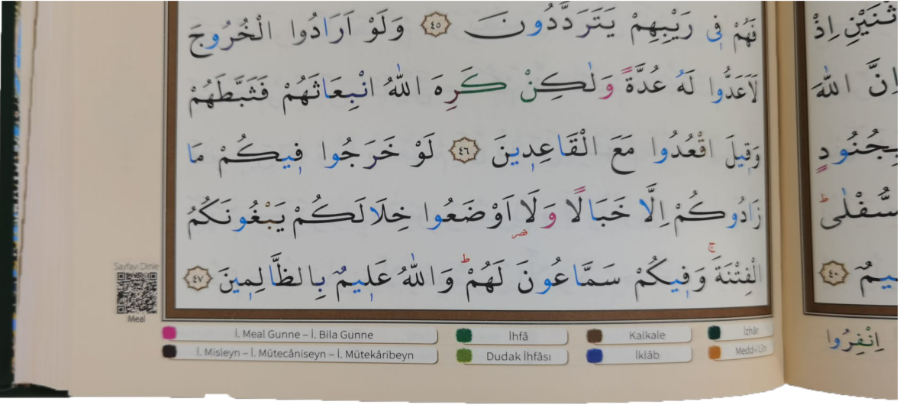 نَهُمْ فٖي رَيْبِهِمْ يَتَرَدَّدُونَ ﴿٤٥﴾ وَلَوْ اَرَادُوا الْخُرُوجَ
لَاَعَدُّوا لَهُ عُدَّةً وَلٰكِنْ كَرِهَ اللّٰهُ انْبِعَاثَهُمْ فَثَبَّطَهُمْ
وَقٖيلَ اقْعُدُوا مَعَ الْقَاعِدٖينَ ﴿٤٦﴾ لَوْ خَرَجُوا فٖيكُمْ مَا
زَادُوكُمْ اِلَّا خَبَالًا وَلَا۬ اَوْضَعُوا خِلَالَكُمْ يَبْغُونَكُمُ
قصر
الْفِتْنَةَۚ وَفٖيكُمْ سَمَّاعُونَ لَهُمْۜ وَاللّٰهُ عَلٖيمٌ بِالظَّالِمٖينَ ﴿٤٧﴾
ثْنَيْنِ اِذْ
اِنَّ اللّٰهَ
بِجُنُودٍ
سُّفْلٰى
يمٌ ﴿٤٠﴾
اِنْفِرُوا
Sayfayı Dinle
Meal
İ. Meal Gunne – İ. Bila Gunne
İhfâ
Kalkale
İzhâr
İ. Misleyn – İ. Mütecâniseyn – İ. Mütekâribeyn
Dudak İhfâsı
İklâb
Medd-i Lîn